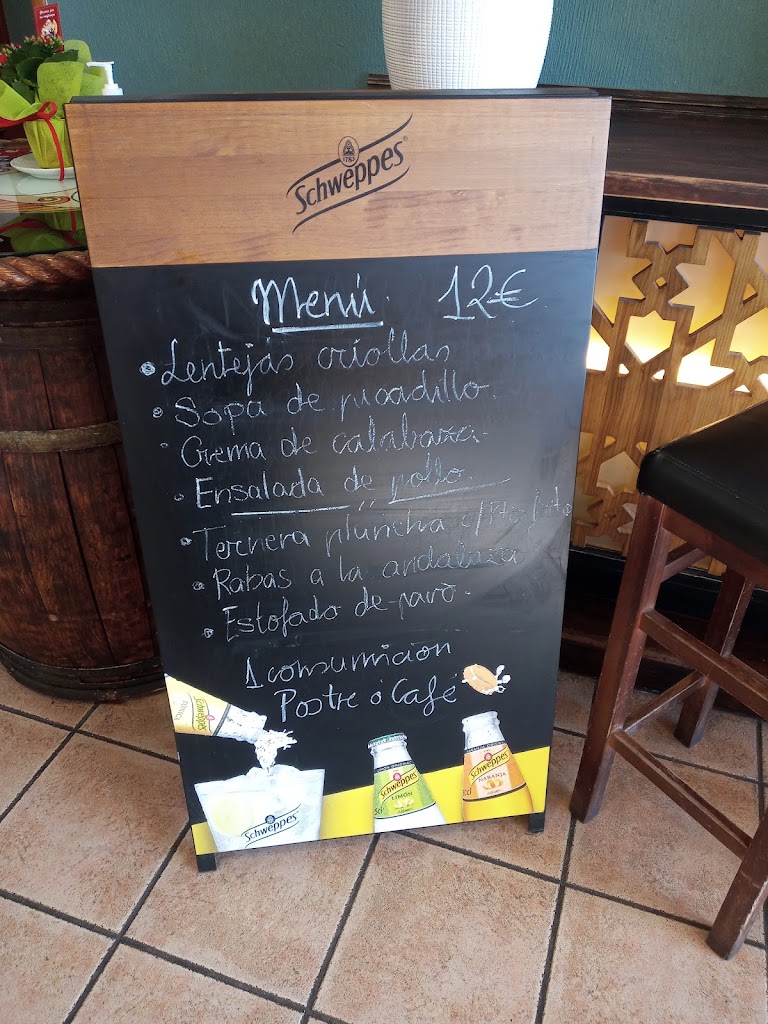 1783
Schweppes
Menú 12€
Lentejas criollas
Sopa de picadillo
Crema de calabaza
Ensalada de pollo
Ternera pluncha c/Pto frito
Rabas a la andaluza
Estofado de pavo.
1 consumición
Postre ó Café
Schweppes
Schweppes
Schweppes
LIMÓN
Schweppes
NARANJA